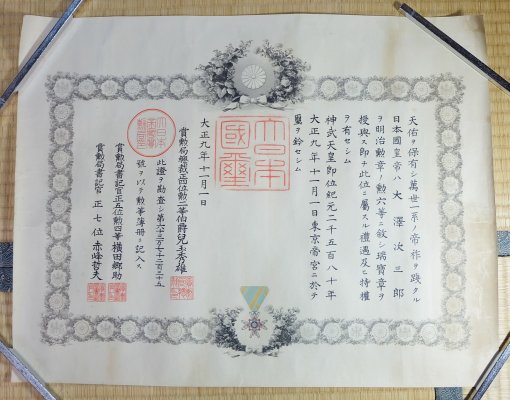 天佑ヲ保有シ萬世一系ノ帝祚ヲ踐タル
日本國皇帝ハ大澤次三郎
ヲ明治勲章ノ勲六等ニ敘シ瑞寶章ヲ
授與ス即チ此位ニ屬スル禮遇及ヒ特權
ヲ有セシム
神武天皇即位紀元二千五百八十年
大正九年十一月一日東京帝宮ニ於テ
璽ヲ鈐セシム
大日本
國璽
大正九年十一月一日
賞勲局總裁正四位勲二等伯爵兒玉秀雄
此證ヲ勘査シ第六十三万七千二百二十五
號ヲ以テ勲等簿册ニ記入ス
賞勲局書記官正五位勲四等横田郷助
賞勲局書記官正七位赤峰哲夫